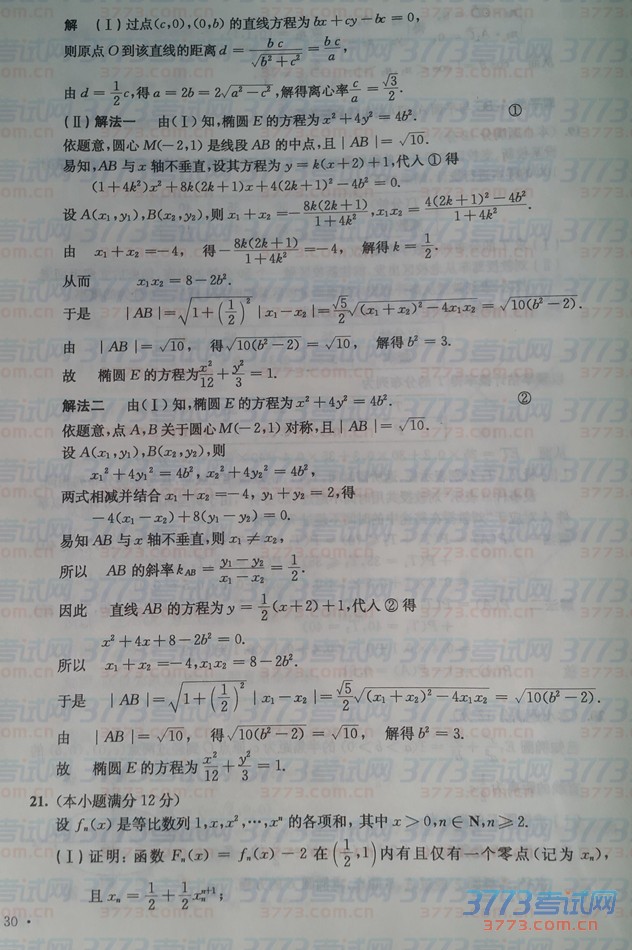 解 (Ⅰ)过点(c,0),(0,b)的直线方程为 bx+cy-bc=0,
则原点 O 到该直线的距离 d=\frac{bc}{\sqrt{b²+c²}}=\frac{bc}{a},
由 d=\frac{1}{2}c,得 a=2b=2\sqrt{a²-c²},解得离心率\frac{c}{a}=\frac{\sqrt{3}}{2}.
(Ⅱ)解法一 由(Ⅰ)知,椭圆 E 的方程为 x²+4y²=4b². ①
依题意,圆心 M(-2,1)是线段 AB 的中点,且|AB|=\sqrt{10}.
易知,AB 与 x 轴不垂直,设其方程为 y=k(x+2)+1,代入①得
(1+4k²)x²+8k(2k+1)x+4(2k+1)²-4b²=0.
设 A(x₁,y₁),B(x₂,y₂),则 x₁+x₂=-\frac{8k(2k+1)}{1+4k²},x₁x₂=\frac{4(2k+1)²-4b²}{1+4k²}.
由 x₁+x₂=-4, 得-\frac{8k(2k+1)}{1+4k²}=-4, 解得 k=\frac{1}{2}.
从而 x₁x₂=8-2b².
于是 |AB|=\sqrt{1+(\frac{1}{2})²}|x₁-x₂|=\frac{\sqrt{5}}{2}\sqrt{(x₁+x₂)²-4x₁x₂}=\sqrt{10(b²-2)}.
由 |AB|=\sqrt{10}, 得\sqrt{10(b²-2)}=\sqrt{10}, 解得 b²=3.
故 椭圆 E 的方程为\frac{x²}{12}+\frac{y²}{3}=1.
解法二 由(Ⅰ)知,椭圆 E 的方程为 x²+4y²=4b². ②
依题意,点 A,B 关于圆心 M(-2,1)对称,且|AB|=\sqrt{10}.
设 A(x₁,y₁),B(x₂,y₂),则
x₁²+4y₁²=4b², x₂²+4y₂²=4b²,
两式相减并结合 x₁+x₂=-4, y₁+y₂=2,得
-4(x₁-x₂)+8(y₁-y₂)=0.
易知 AB 与 x 轴不垂直,则 x₁≠x₂,
所以 AB 的斜率 k_{AB}=\frac{y₁-y₂}{x₁-x₂}=\frac{1}{2}.
因此 直线 AB 的方程为 y=\frac{1}{2}(x+2)+1,代入②得
x²+4x+8-2b²=0.
所以 x₁+x₂=-4,x₁x₂=8-2b².
于是 |AB|=\sqrt{1+(\frac{1}{2})²}|x₁-x₂|=\frac{\sqrt{5}}{2}\sqrt{(x₁+x₂)²-4x₁x₂}=\sqrt{10(b²-2)}.
由 |AB|=\sqrt{10}, 得\sqrt{10(b²-2)}=\sqrt{10}, 解得 b²=3.
故 椭圆 E 的方程为\frac{x²}{12}+\frac{y²}{3}=1.
21.(本小题满分 12 分)
设 fₙ(x)是等比数列 1,x,x²,…,xⁿ 的各项和, 其中 x>0,n∈N,n≥2.
(Ⅰ)证明:函数 Fₙ(x)=fₙ(x)-2 在(\frac{1}{2},1)内有且仅有一个零点(记为 xₙ),
且 xₙ=\frac{1}{2}+\frac{1}{2}xₙⁿ⁺¹;
30·
3773考试网
3773.com.cn